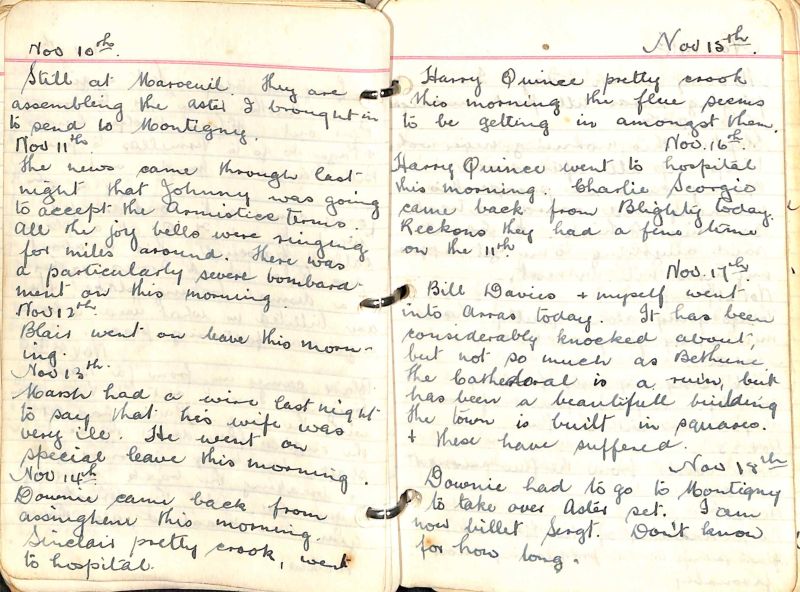 Nov 10th.
Still at Maroeuil. They are
assembling the Aster I brought in
to send to Montigny.
Nov 11th
The news came through last
night that Johnny was going
to accept the Armistice terms.
All the joy bells were ringing
for miles around. There was
a particularly severe bombard-
ment on this morning.
Nov 12th
Blair went on leave this morn-
ing.
Nov 13th.
Marsh had a wire last night
to say that his wife was
very ill. He went on
special leave this morning.
Nov 14th
Downie came back from
assinghem this morning.
Sinclair pretty crook, went
to hospital.
Nov 15th.
Harry Quince pretty crook
this morning the flue seems
to be getting in amongst them.
Nov. 16th
Harry Quince went to hospital
this morning. Charlie Georgie
came back from Blighty today.
Reckons they had a fine time
on the 11th.
Nov. 17th.
Bill Davies + myself went
into Arras today. It has been
considerably knocked about,
but not so much as Bethune.
The Cathedaral is a ruin, but
has been a beautifull building
The town is built in squares.
+ these have suffered.
Nov 18th
Downie had to go to Montigny
to take over Aster set. I am
now billet Sergt. Don't know
for how long.